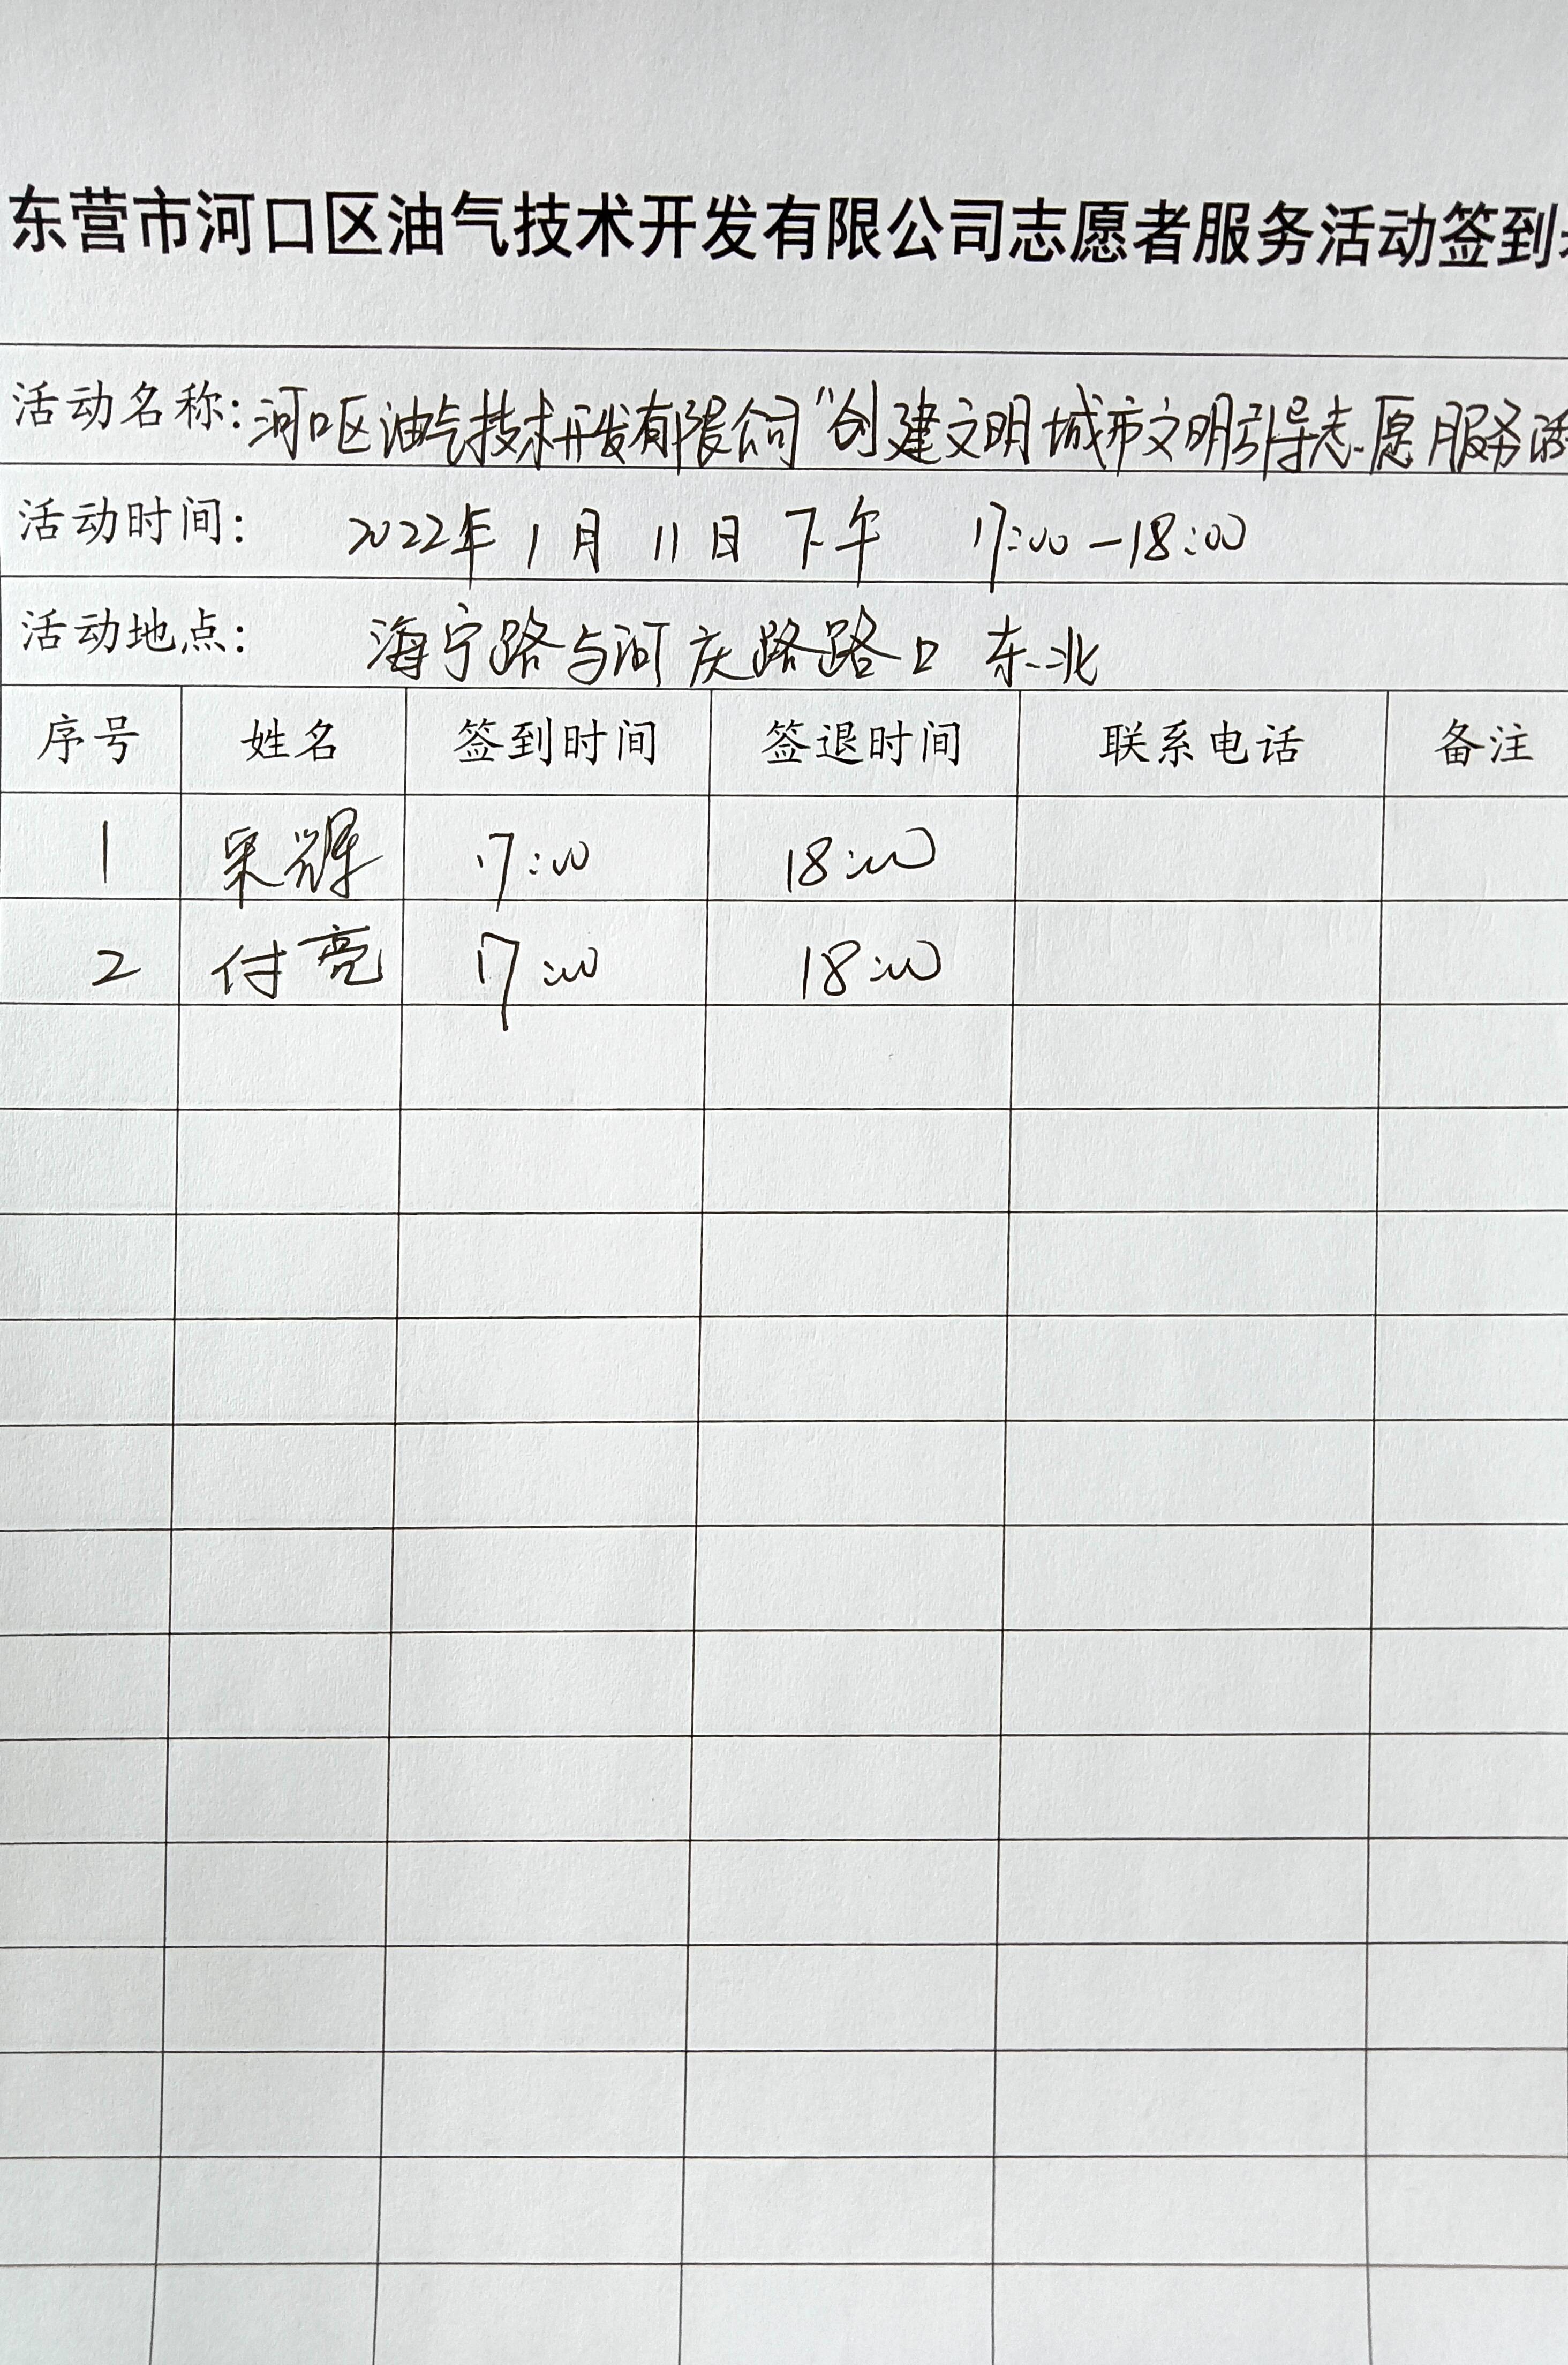 东营市河口区油气技术开发有限公司志愿者服务活动签到
活动名称：河口区油气技术开发有限公司“创建文明城市文明引导志愿服务活
活动时间： 2022年1月11日下午 17:00-18:00
活动地点： 海宁路与河庆路路口 东北
序号 姓名 签到时间 签退时间 联系电话 备注
1 辉 17:00 18:00
2 付亮 17:00 18:00